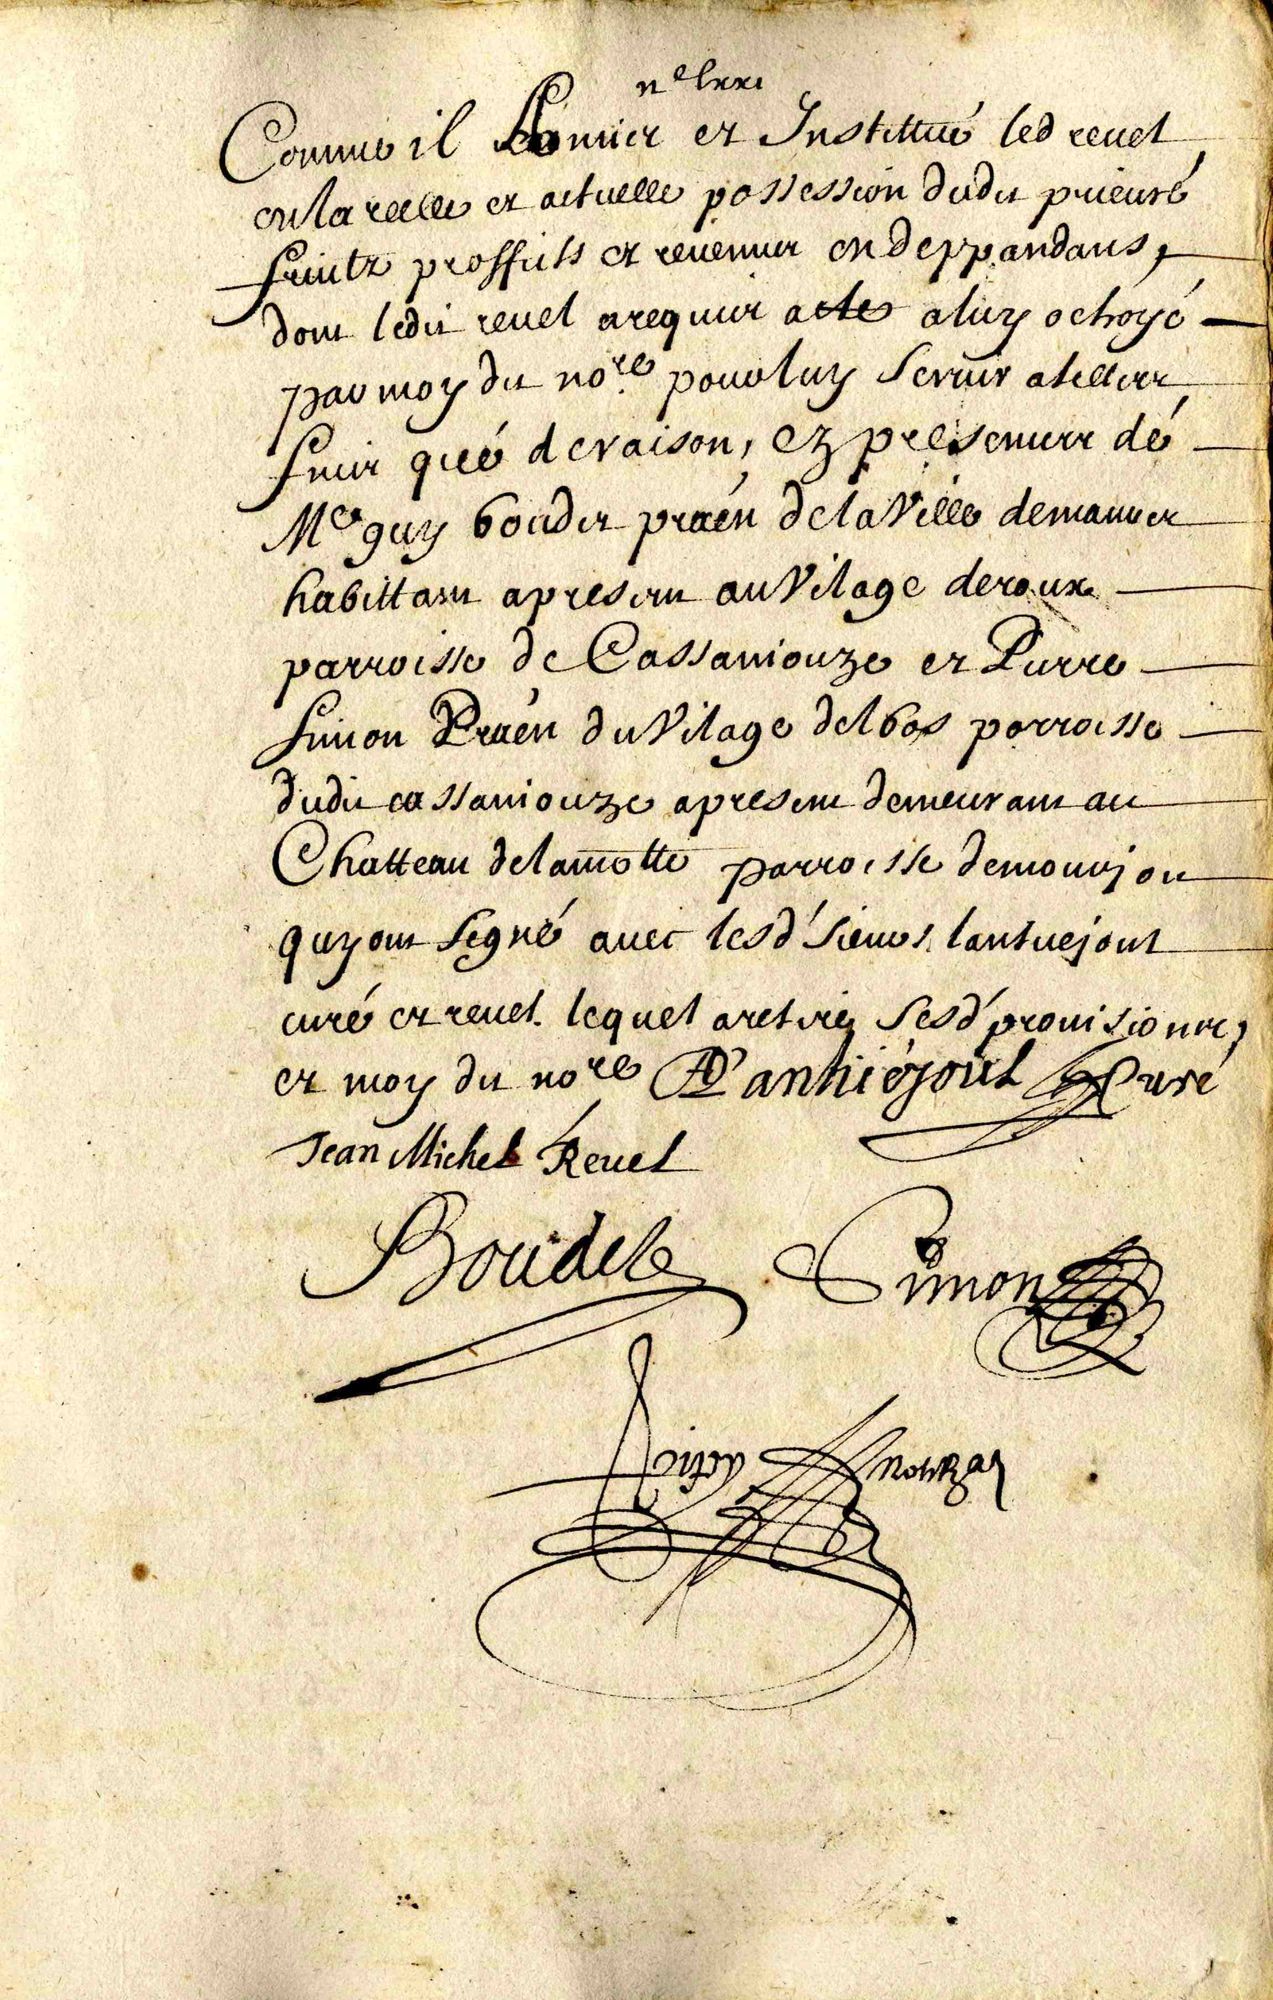 Comme il a mis et Institué led revel
en la reelle et actuelle possession dudit prieuré
fruitz proffits et revenus en deppandans,
dont ledit revel a requis acte a luy octroyé
par moy dit no.re pour luy servir a telles
fins que de raison, ez presences de
Me guy boudet praén de la Ville de
habittant a present au Vilage de roux
parroisse de Cassaniouze et Pierre
Simon Praén du Vilage del bos parroisse
dudit cassaniouze a present demeurant au
Chatteau de lamotte parroisse de mourjou
quy ont signé avec lesd' sieurs lantuejoul
curé et revel lequel a retiré sesd' provisions,
et moy dit no.re Lantuéjoul Curé
Jean Michel Revel
Boudet Simon